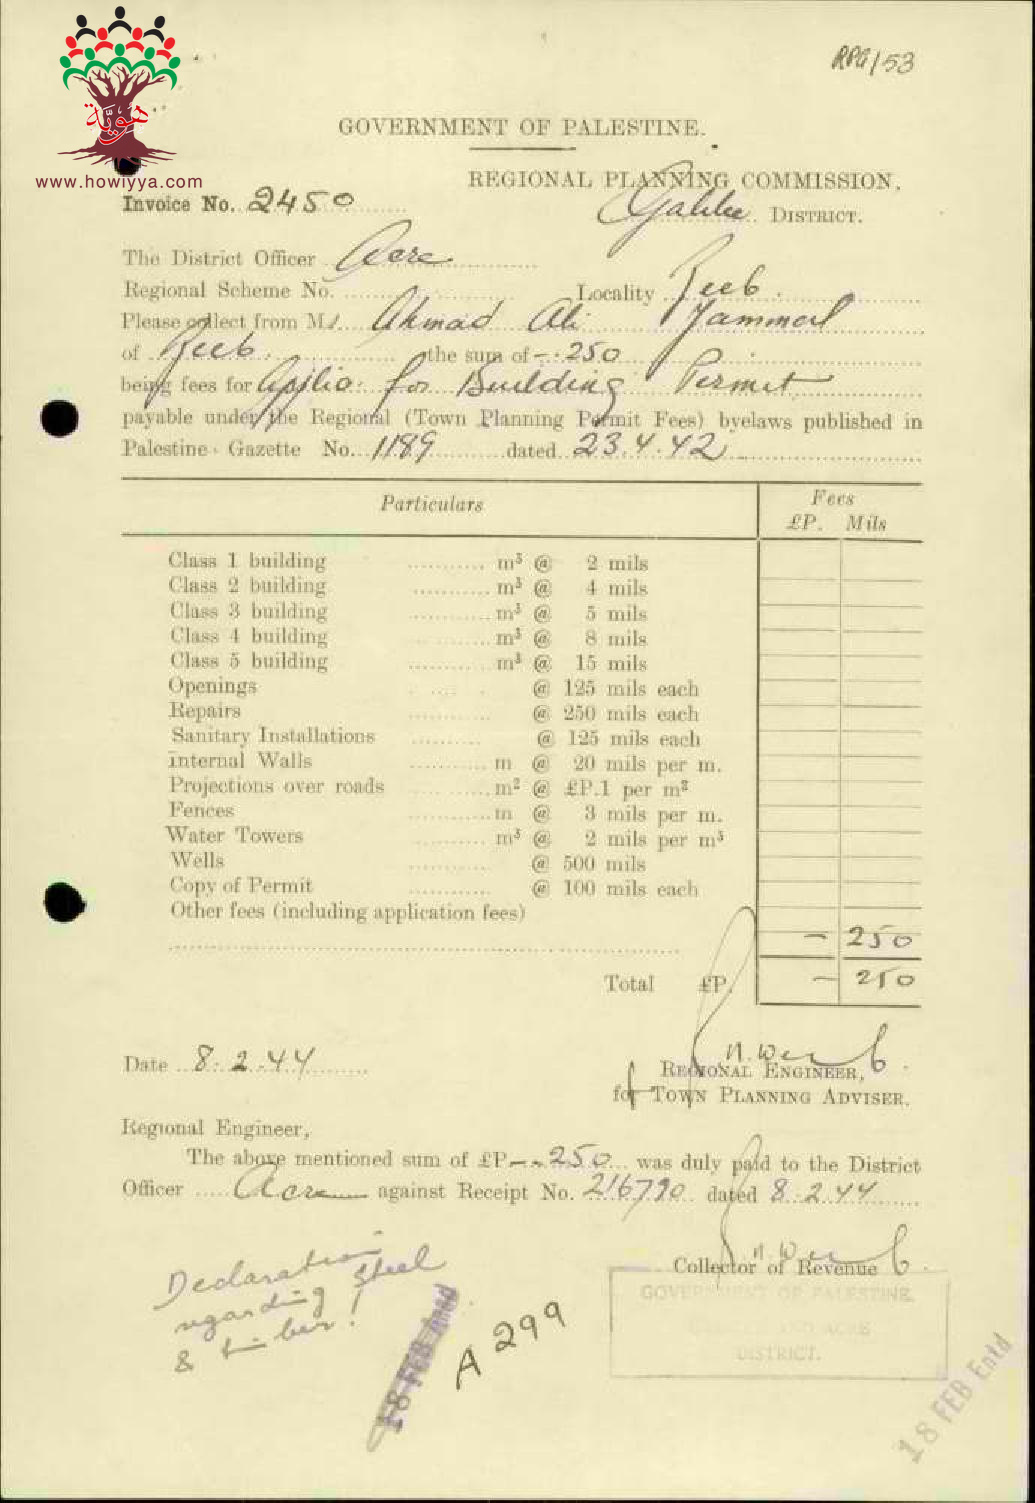 RPG/53
هوية
www.howiyya.com
GOVERNMENT OF PALESTINE.
REGIONAL PLANNING COMMISSION,
Invoice No. 2450
Galilee DISTRICT.
The District Officer Acre
Regional Scheme No. Locality Zeeb
Please collect from Mr. Ahmad Ali
of Zeeb the sum of -.250
being fees for Applio: for Building Permit
payable under the Regional (Town Planning Permit Fees) byelaws published in
Palestine Gazette No. 1189 dated 23.4.42
Particulars Fees
£P. Mils
Class 1 building m³ @ 2 mils
Class 2 building m³ @ 4 mils
Class 3 building m³ @ 5 mils
Class 4 building m³ @ 8 mils
Class 5 building m³ @ 15 mils
Openings @ 125 mils each
Repairs @ 250 mils each
Sanitary Installations @ 125 mils each
Internal Walls m @ 20 mils per m.
Projections over roads m² @ £P.1 per m²
Fences m @ 3 mils per m.
Water Towers m³ @ 2 mils per m³
Wells @ 500 mils
Copy of Permit @ 100 mils each
Other fees (including application fees)
- 250
Total £P. - 250
Date 8.2.44
REGIONAL ENGINEER,
for TOWN PLANNING ADVISER.
Regional Engineer,
The above mentioned sum of £P -.250 was duly paid to the District
Officer Acre against Receipt No. 216790 dated 8.2.44
Collector of Revenue
Declaration
regarding steel
& timber!
GOVERNMENT OF PALESTINE.
AND ACRE
DISTRICT.
18 FEB
A 299
18 FEB Entd